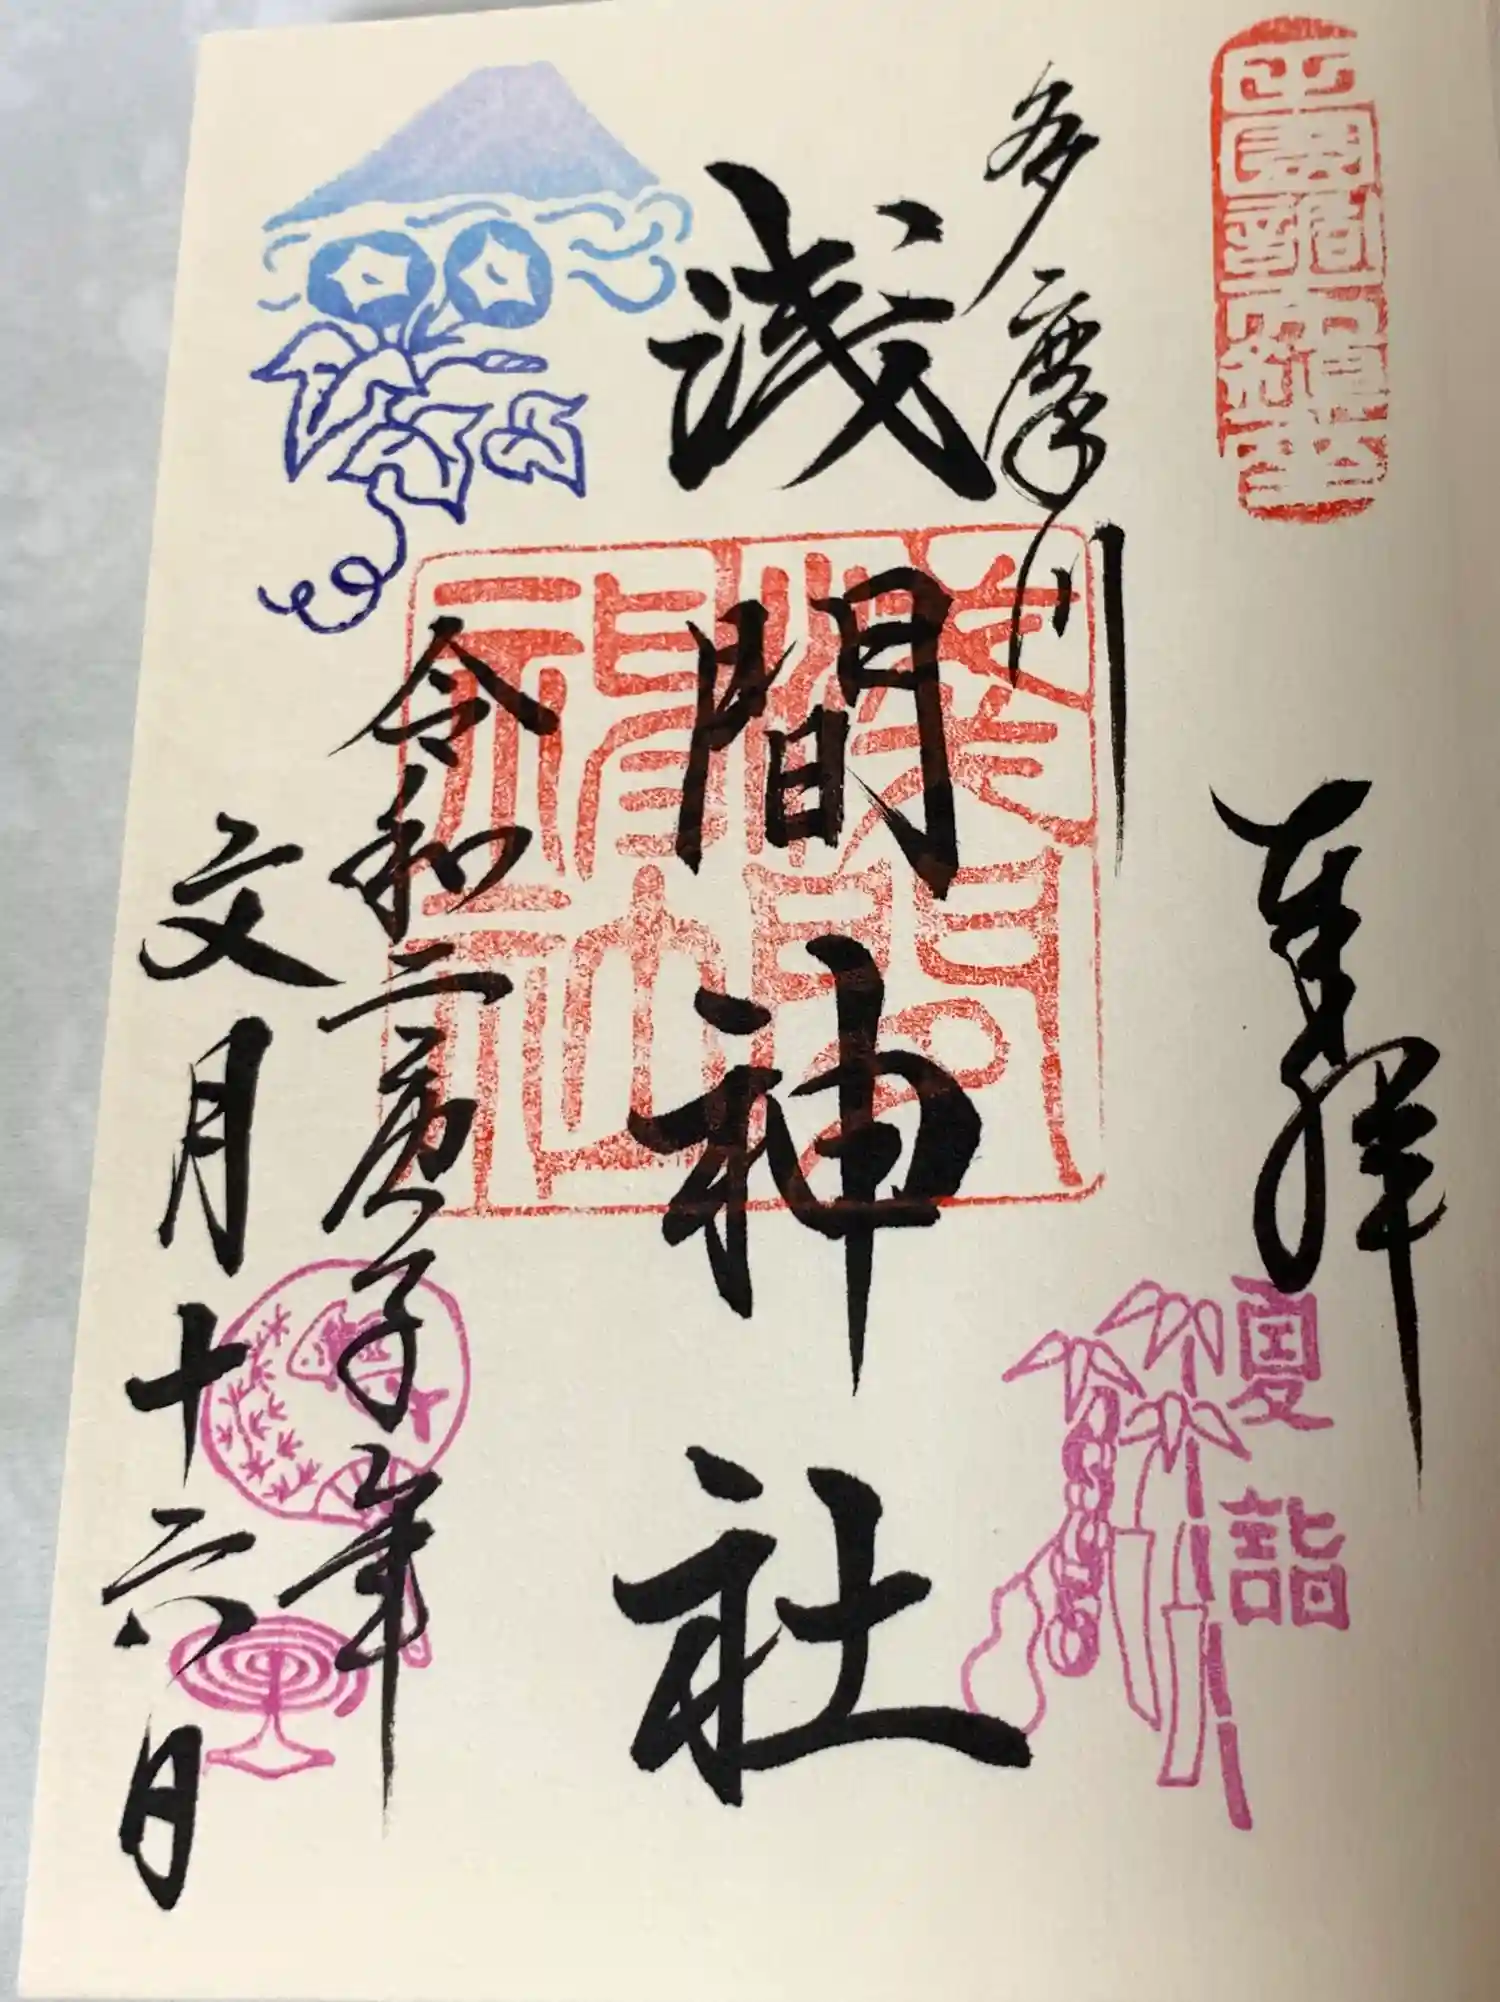 奉拝
夏詣
多摩川
浅間神社
令和二庚子年
文月十六日